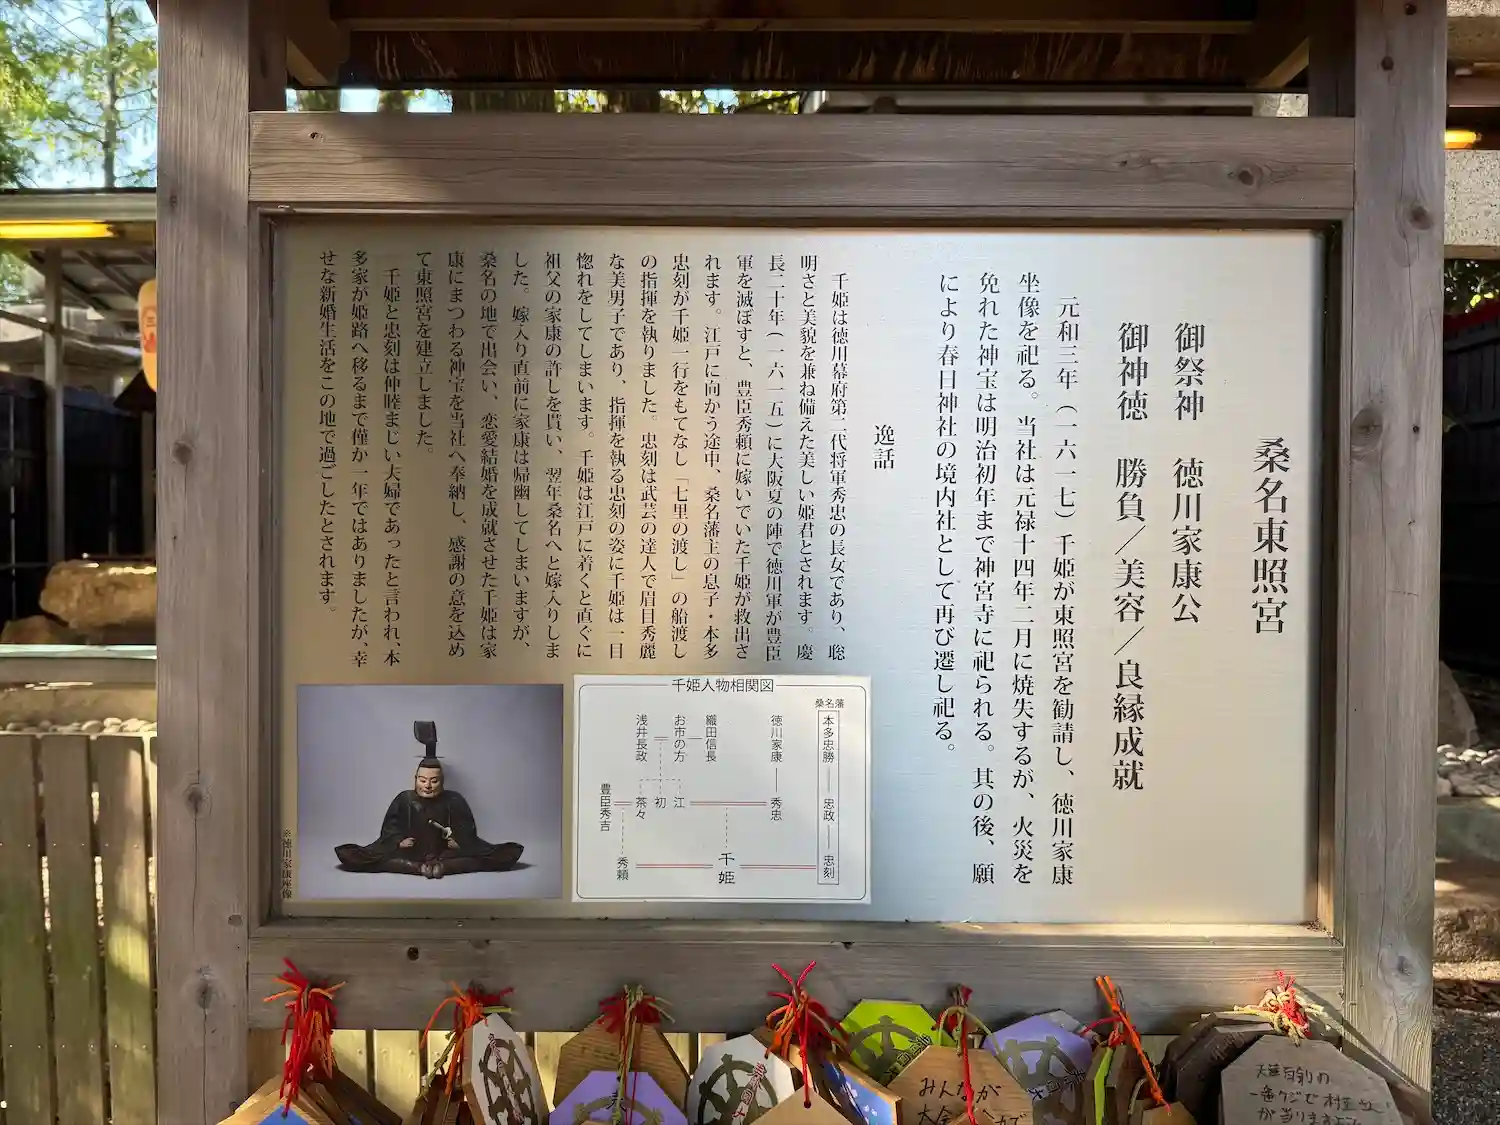 桑名東照宮
御祭神　徳川家康公
御神徳　勝負／美容／良縁成就
元和三年（一六一七）千姫が東照宮を勧請し、徳川家康
坐像を祀る。当社は元禄十四年二月に焼失するが、火災を
免れた神宝は明治初年まで神宮寺に祀られる。其の後、願
により春日神社の境内社として再び遷し祀る。
逸話
千姫は徳川幕府第二代将軍秀忠の長女であり、聡
明さと美貌を兼ね備えた美しい姫君とされます。慶
長二十年（一六一五）に大阪夏の陣で徳川軍が豊臣
軍を滅ぼすと、豊臣秀頼に嫁いでいた千姫が救出さ
れます。江戸に向かう途中、桑名藩主の息子・本多
忠刻が千姫一行をもてなし「七里の渡し」の船渡し
の指揮を執りました。忠刻は武芸の達人で眉目秀麗
な美男子であり、指揮を執る忠刻の姿に千姫は一目
惚れをしてしまいます。千姫は江戸に着くと直ぐに
祖父の家康の許しを貰い、翌年桑名へと嫁入りしま
した。嫁入り直前に家康は帰幽してしまいますが、
桑名の地で出会い、恋愛結婚を成就させた千姫は家
康にまつわる神宝を当社へ奉納し、感謝の意を込め
て東照宮を建立しました。
千姫と忠刻は仲睦まじい夫婦であったと言われ、本
多家が姫路へ移るまで僅か一年ではありましたが、幸
せな新婚生活をこの地で過ごしたとされます。
千姫人物相関図
桑名藩
本多忠勝
忠政
忠刻
徳川家康
秀忠
織田信長
お市の方
浅井長政
江
初
茶々
豊臣秀吉
秀頼
千姫
※徳川家康座像
みんなが